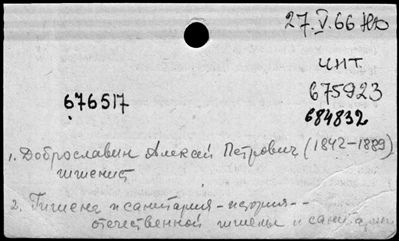 27.V.66 Ню
ч.п.т.
675923
676517
684832
1. Доброславин Алексей Петрович (1842-1889)
гигиенист
2. Гигиена и санитария - история - -
отечественной гигиены и санитарии